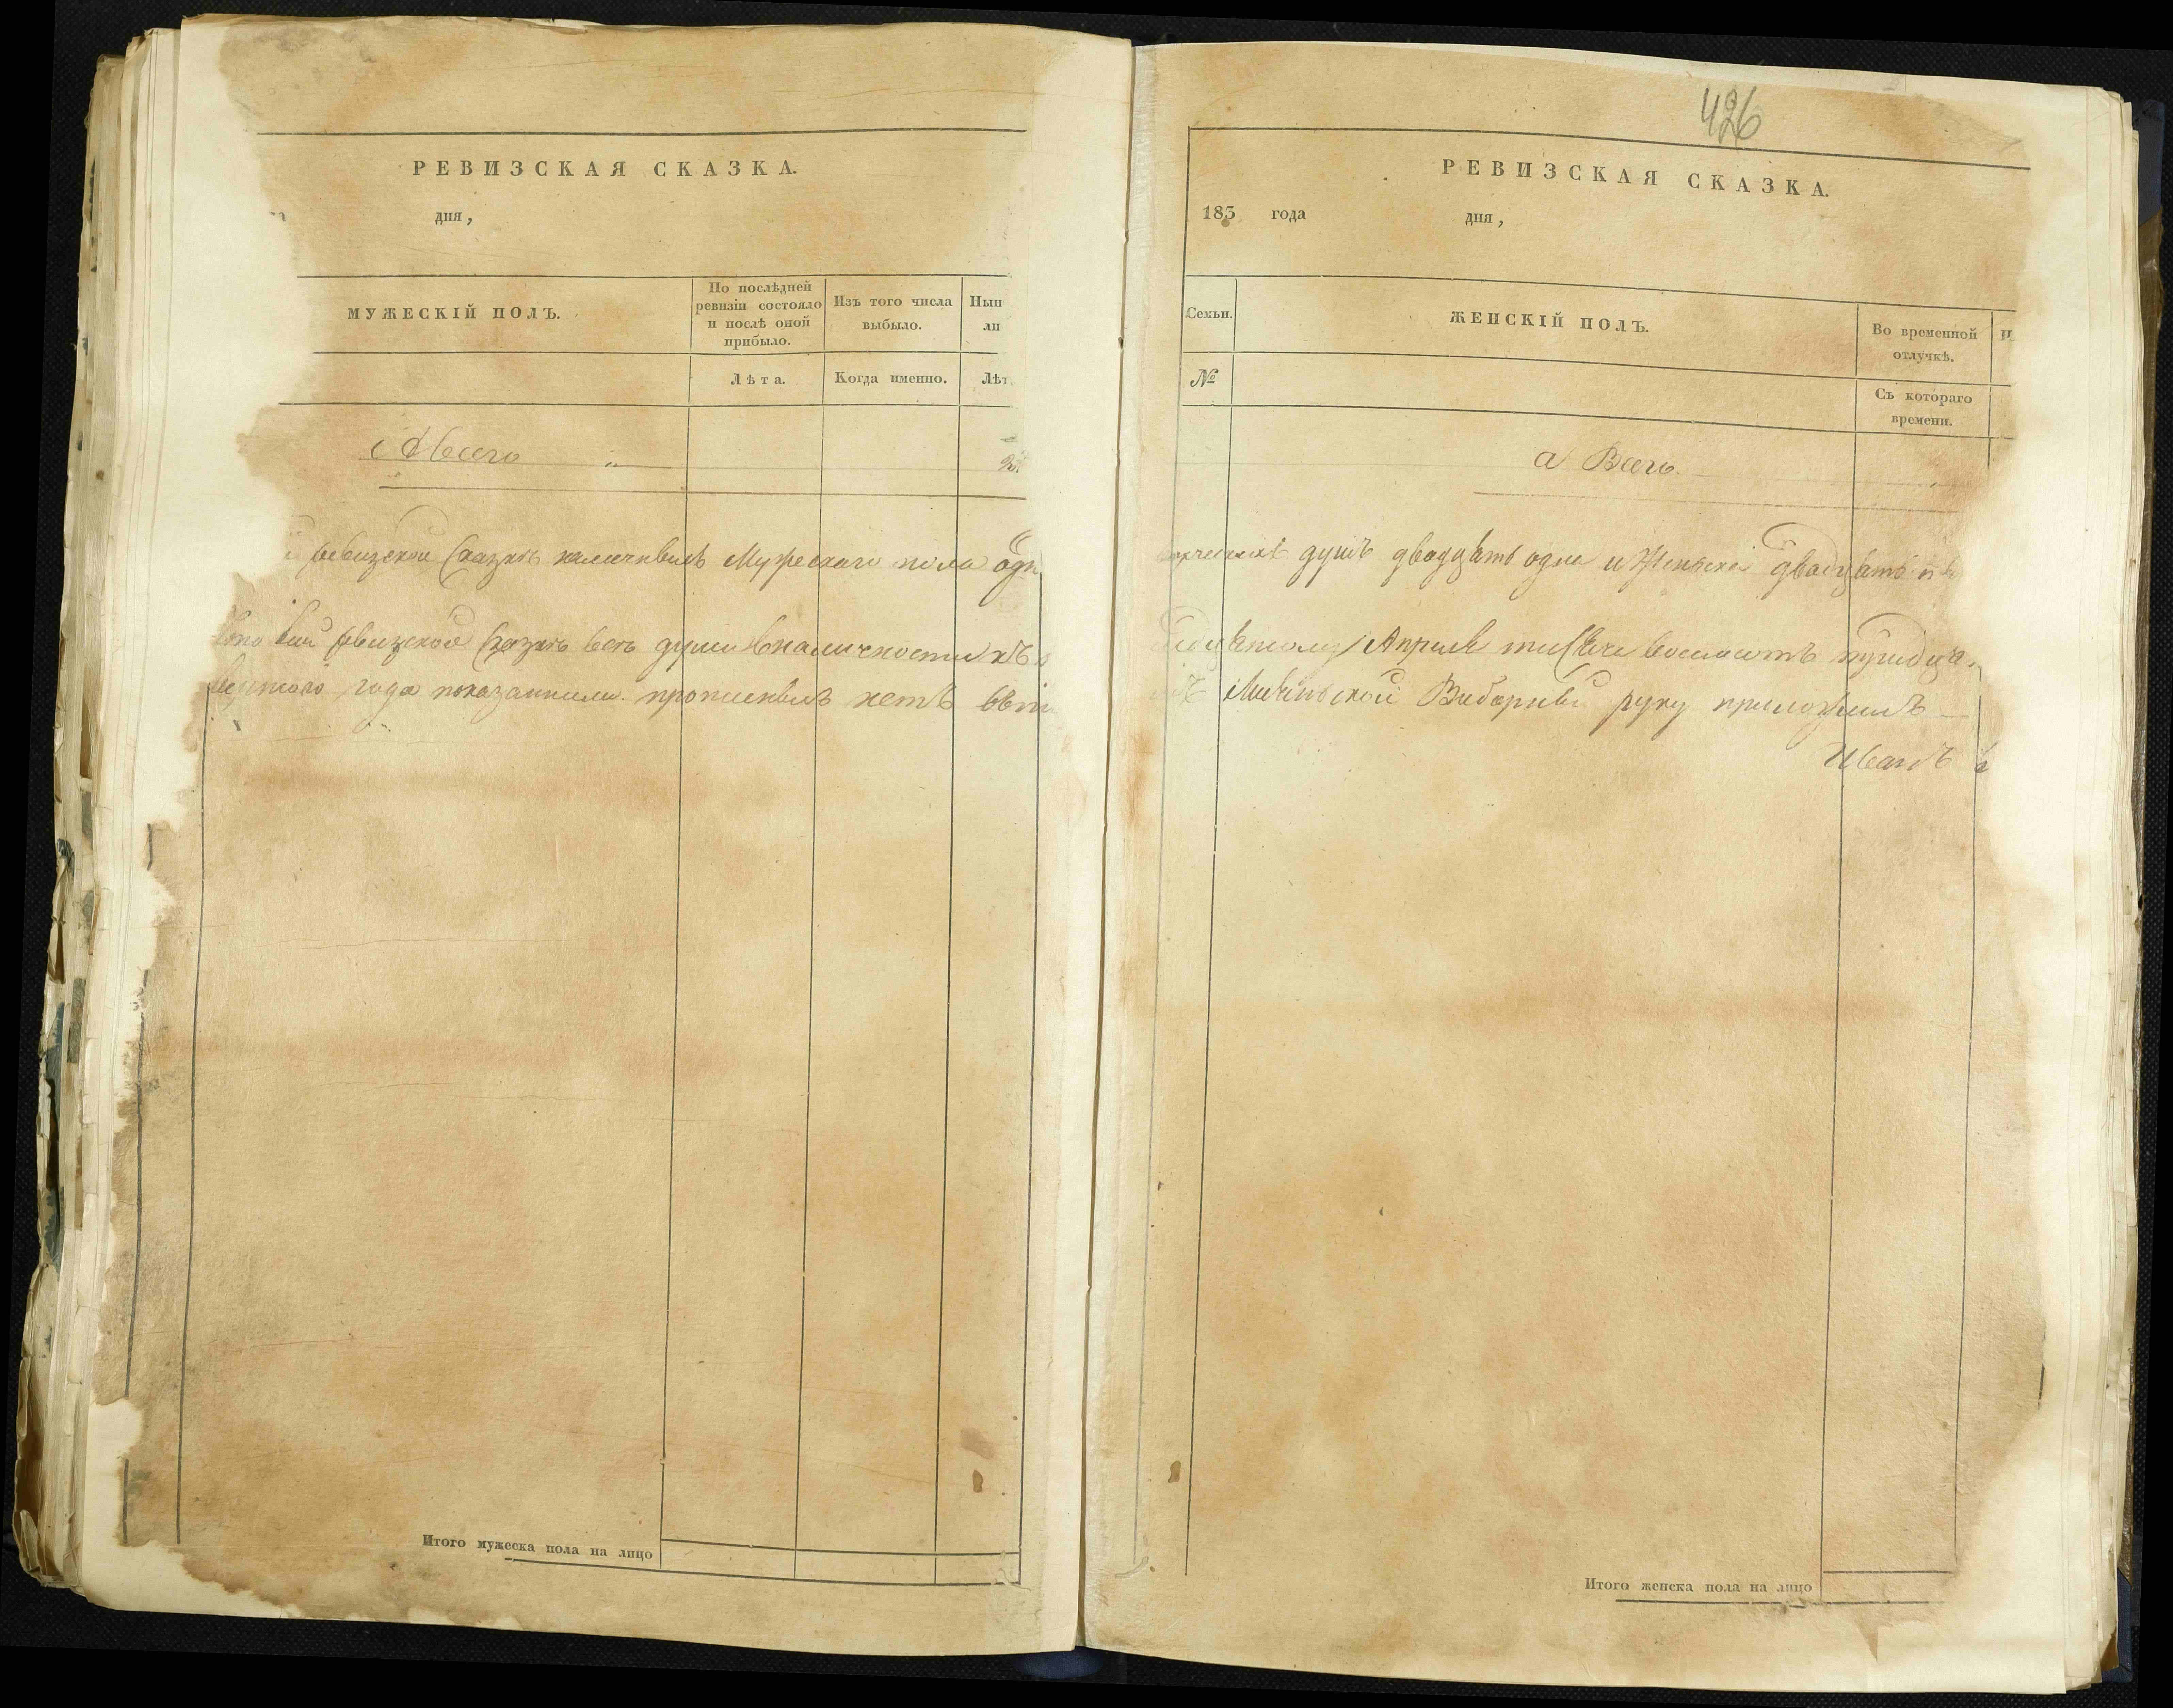 РЕВИЗСКАЯ СКАЗКА.
дня,
МУЖЕСКІЙ ПОЛЪ.
По послѣдней
ревизіи состояло
и послѣ оной
прибыло.
Изъ того числа
выбыло.
Нын
ли
Лѣта.
Когда именно.
Лѣт
Авсего
ревизской сказки наличныхъ Мужескаго пола одн
ревизской сказкѣ всѣ души вналичности
года показанными прописныхъ нетъ
Итого мужеска пола на лицо
426
РЕВИЗСКАЯ СКАЗКА.
183 года
дня,
Семьи.
ЖЕНСКІЙ ПОЛЪ.
Во временной
отлучкѣ.
№
Съ котораго
времени.
а Всего
душъ двадцать одна и Женска двадцать
Апреля тысяча восмсотъ тридца
Выборный руку приложилъ
Иванъ
Итого женска пола на лицо